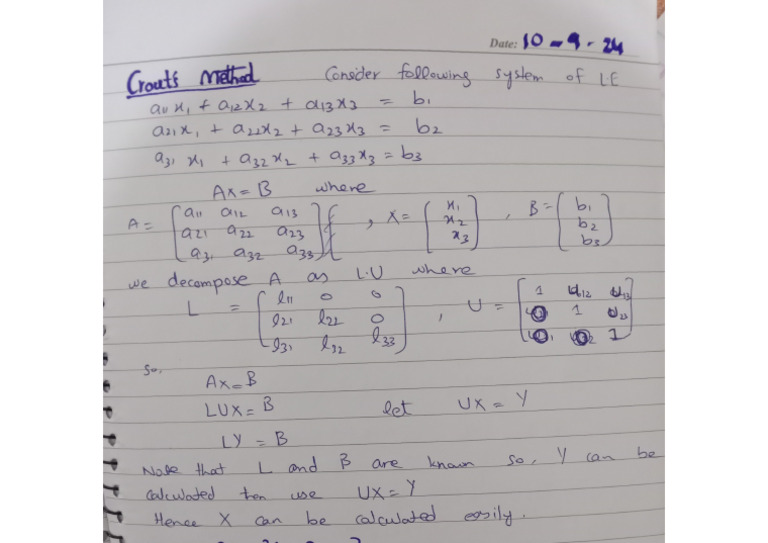 Date: 10 - 9 - 24
Crout's Method Consider following system of L.E
a11 x1 + a12 x2 + a13 x3 = b1
a21 x1 + a22 x2 + a23 x3 = b2
a31 x1 + a32 x2 + a33 x3 = b3
AX = B where
A = [a11 a12 a13; a21 a22 a23; a31 a32 a33], X = [x1; x2; x3], B = [b1; b2; b3]
we decompose A as L.U where
L = [l11 0 0; l21 l22 0; l31 l32 l33], U = [1 u12 u13; 0 1 u23; 0 0 1]
So.
AX = B
LUX = B let UX = Y
LY = B
Note that L and B are known so, Y can be
calculated then use UX = Y
Hence X can be calculated easily.